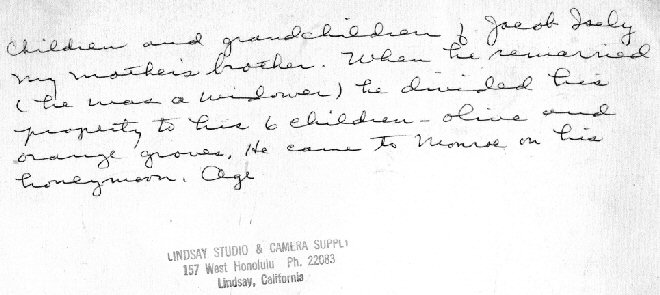 Children and grandchildren of Jacob Isely
my mother's brother. When he remarried
(he was a widower) he divided his
property to his 6 children - olive and
orange groves. He came to Monroe on his
honeymoon. Age
LINDSAY STUDIO & CAMERA SUPPLY
157 West Honolulu Ph. 22083
Lindsay, California